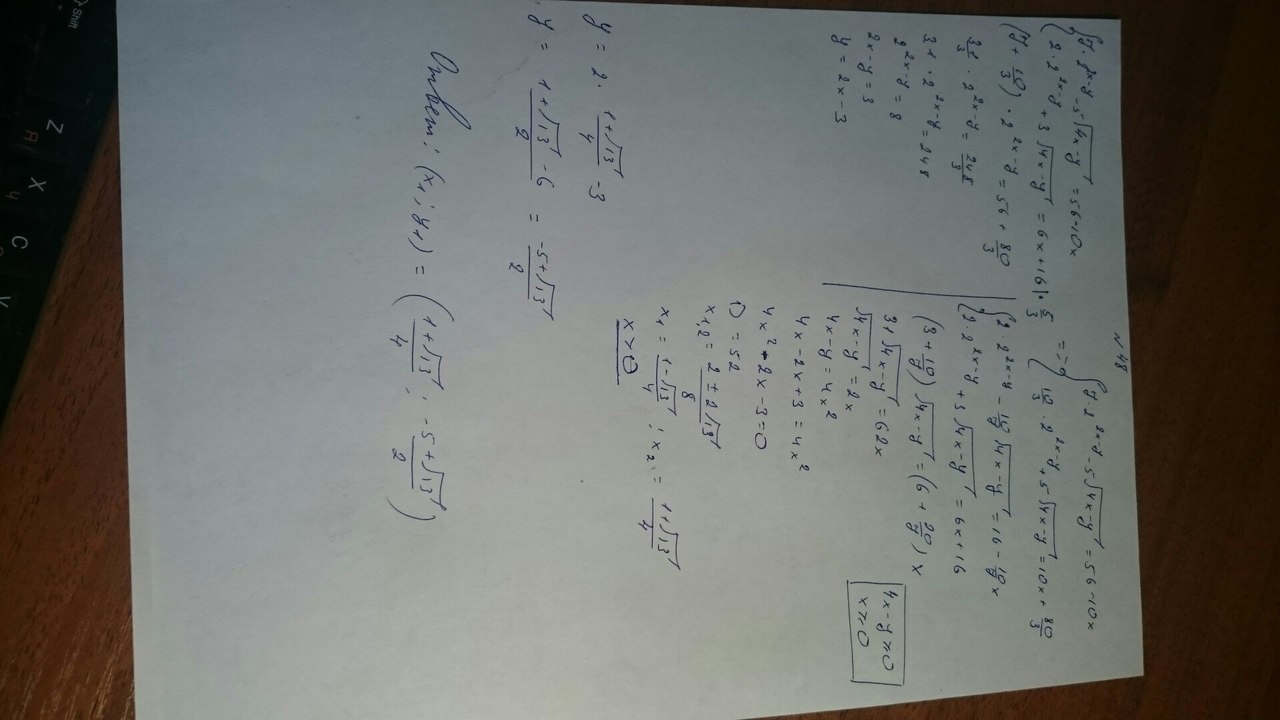 N 48
{7·2^(2x-y) -5√(4x-y) = 56-10x
{2·2^(2x-y) + 3√(4x-y) = 6x+16 |·5/3
=> {7·2^(2x-y) -5√(4x-y) = 56-10x
{10/3·2^(2x-y) +5√(4x-y) = 10x + 80/3
(7+10/3)·2^(2x-y) = 56 + 80/3
31/3·2^(2x-y) = 248/3
31·2^(2x-y) = 248
2^(2x-y) = 8
2x-y = 3
y = 2x-3
{2·2^(2x-y) - 10/7√(4x-y) = 16 - 20/7x
{2·2^(2x-y) + 3√(4x-y) = 6x+16
(3+10/7)√(4x-y) = (6+20/7)x
31√(4x-y) = 62x
√(4x-y) = 2x
4x-y = 4x²
4x-2x+3 = 4x²
4x²-2x-3=0
D = 52
x1,2 = (2±2√13)/8
x1 = (1-√13)/4 ; x2 = (1+√13)/4
x>0
4x-y≥0
x≥0
y = 2·(1+√13)/4 -3
y = (1+√13-6)/2 = (-5+√13)/2
Ответ: (x1; y1) = ((1+√13)/4 ; (-5+√13)/2)
Shift
Z
X
C
Я
Ч